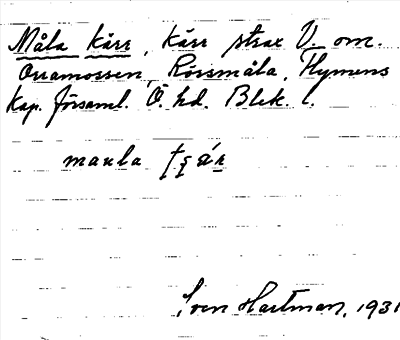 Måla kärr, Kärr strax V om.
Orramossen, Rössmåla, Flymens
Kap. församl. Ö. hd. Blek. l.
maula
Sven Hartman, 1931